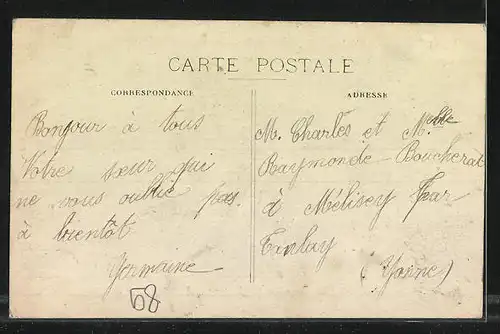 CARTE POSTALE
CORRESPONDANCE
ADRESSE
Bonjour à tous
Votre sœur qui
ne vous oublie pas
à bientôt
Germaine
68
M. Charles et Melle
Raymonde Boucherat
à Mélisey Par
Tanlay
(Yonne)